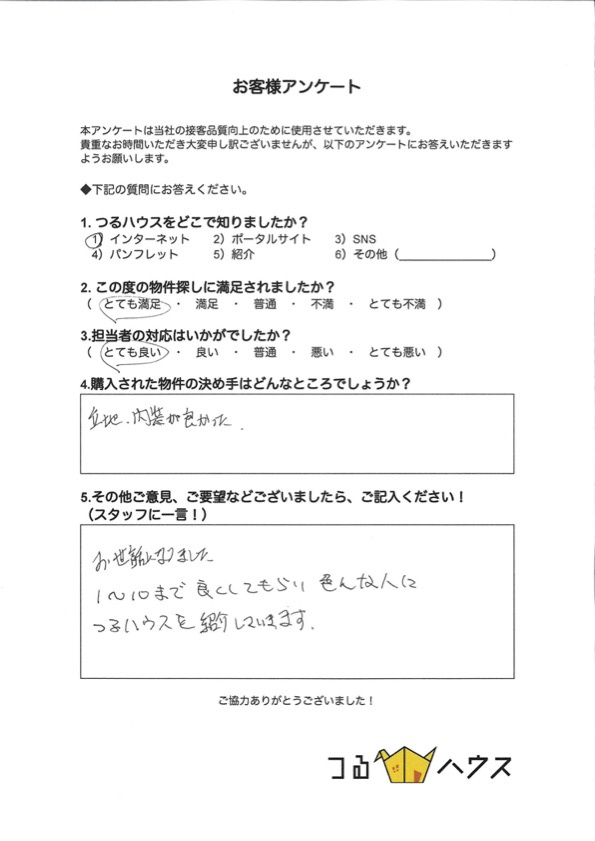 お客様アンケート
本アンケートは当社の接客品質向上のために使用させていただきます。
貴重なお時間いただき大変申し訳ございませんが、以下のアンケートにお答えいただきます
ようお願いします。
◆下記の質問にお答えください。
1. つるハウスをどこで知りましたか？
1）インターネット 2）ポータルサイト 3）SNS
4）パンフレット 5）紹介 6）その他（＿＿＿＿＿＿＿）
2. この度の物件探しに満足されましたか？
（ とても満足 ・ 満足 ・ 普通 ・ 不満 ・ とても不満 ）
3.担当者の対応はいかがでしたか？
（ とても良い ・ 良い ・ 普通 ・ 悪い ・ とても悪い ）
4.購入された物件の決め手はどんなところでしょうか？
立地、内装が良かった.
5.その他ご意見、ご要望などございましたら、ご記入ください！
（スタッフに一言！）
お世話になりました
1〜10まで 良くしてもらい 色んな人に
つるハウスを紹介しています.
ご協力ありがとうございました！
つるハウス